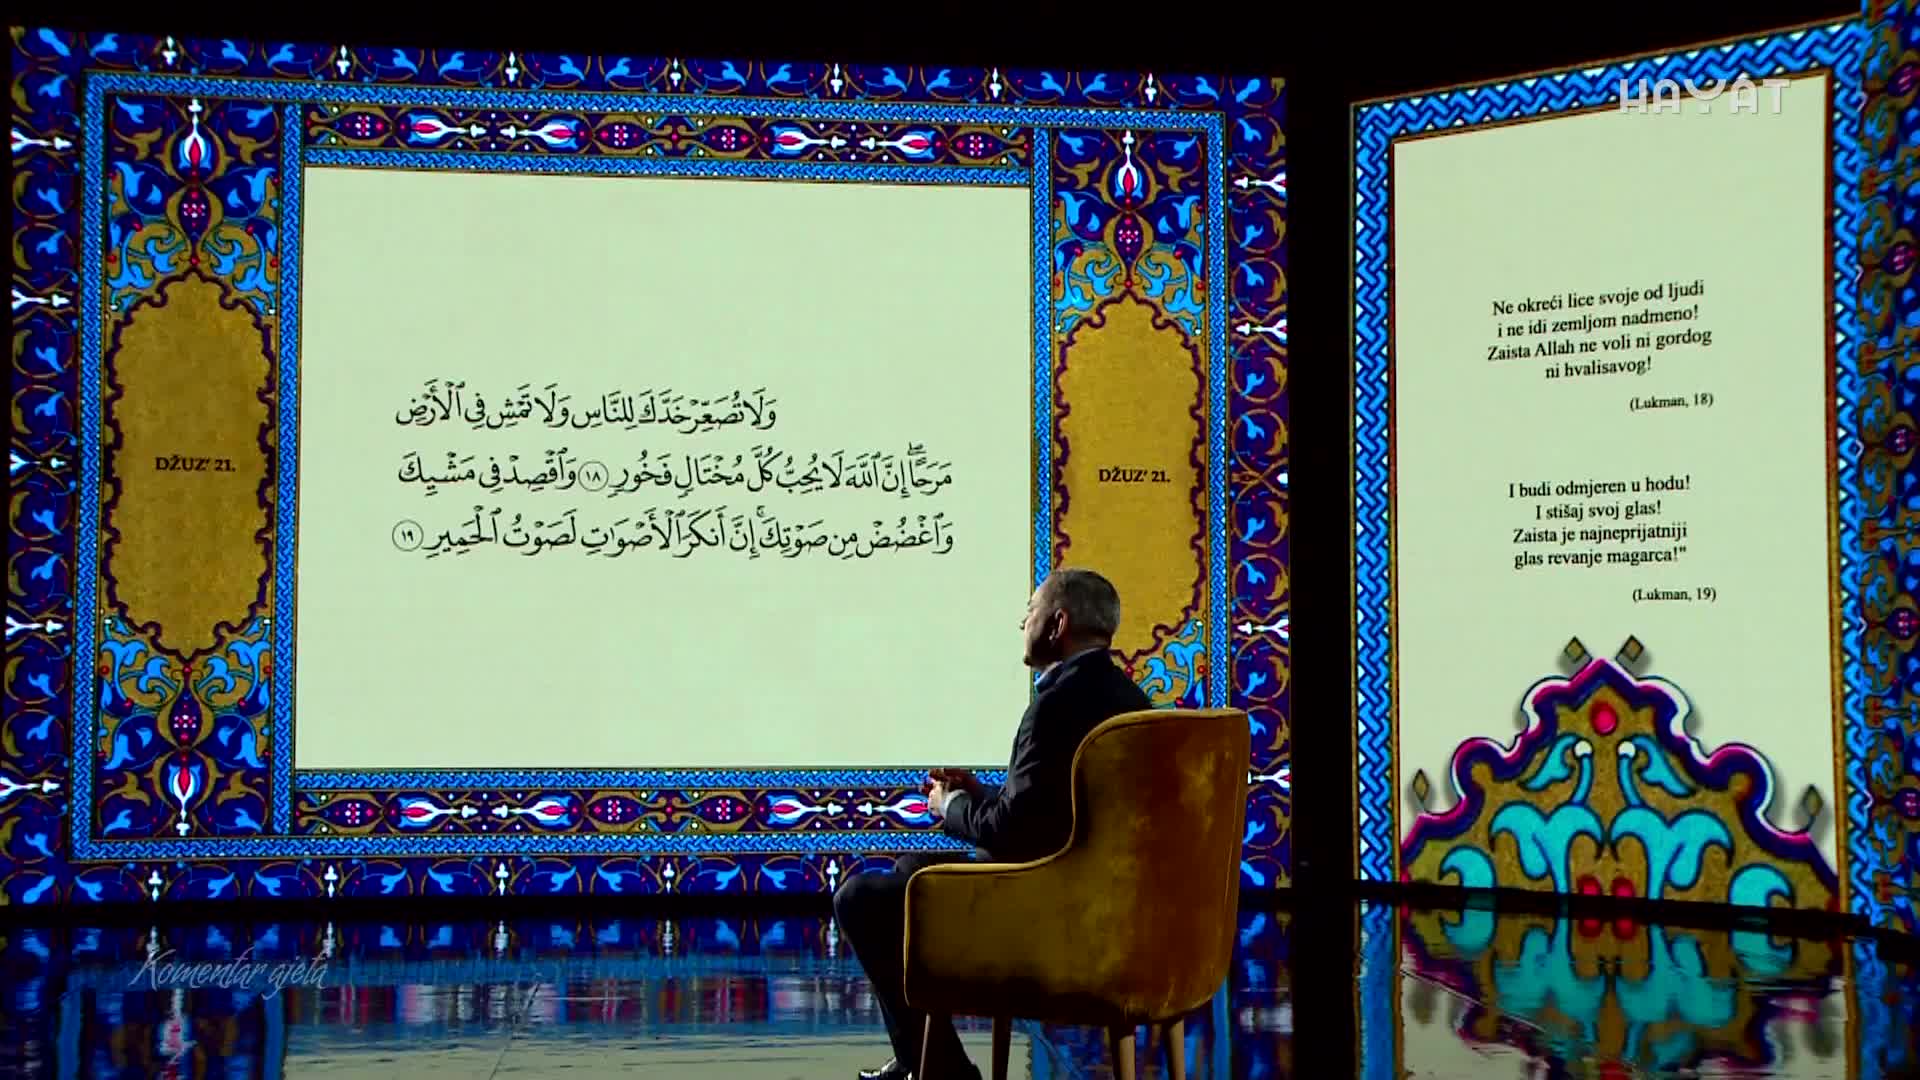 HAYAT
وَلَا تُصَعِّرْ خَدَّكَ لِلنَّاسِ وَلَا تَمْشِ فِي ٱلْأَرْضِ
مَرَحًا ۖ إِنَّ ٱللَّهَ لَا يُحِبُّ كُلَّ مُخْتَالٍ فَخُورٍ ١٨ وَٱقْصِدْ فِي مَشْيِكَ
وَٱغْضُضْ مِن صَوْتِكَ ۚ إِنَّ أَنكَرَ ٱلْأَصْوَٰتِ لَصَوْتُ ٱلْحَمِيرِ ١٩
DŽUZ' 21.
DŽUZ' 21.
Ne okreći lice svoje od ljudi
i ne idi zemljom nadmeno!
Zaista Allah ne voli ni gordog
ni hvalisavog!
(Lukman, 18)
I budi odmjeren u hodu!
I stišaj svoj glas!
Zaista je najneprijatniji
glas revanje magarca!"
(Lukman, 19)
Komentar ajeta